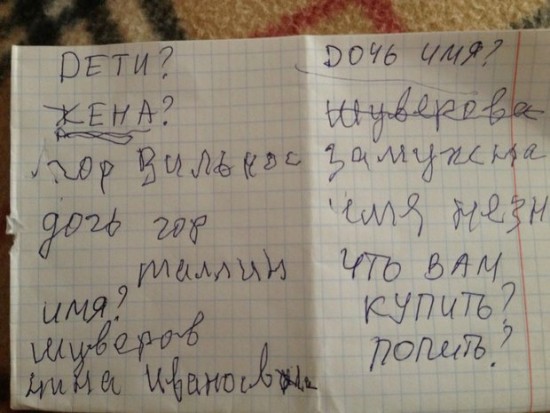 ДЕТИ?
ЖЕНА?
гор Вильнюс
дочь гор
таллин
ИМЯ?
Шуверов
Ивановна
ДОЧЬ ИМЯ?
Шуверова
Замужна
имя незн
ЧТО ВАМ
КУПИТЬ?
ПОПИТЬ?